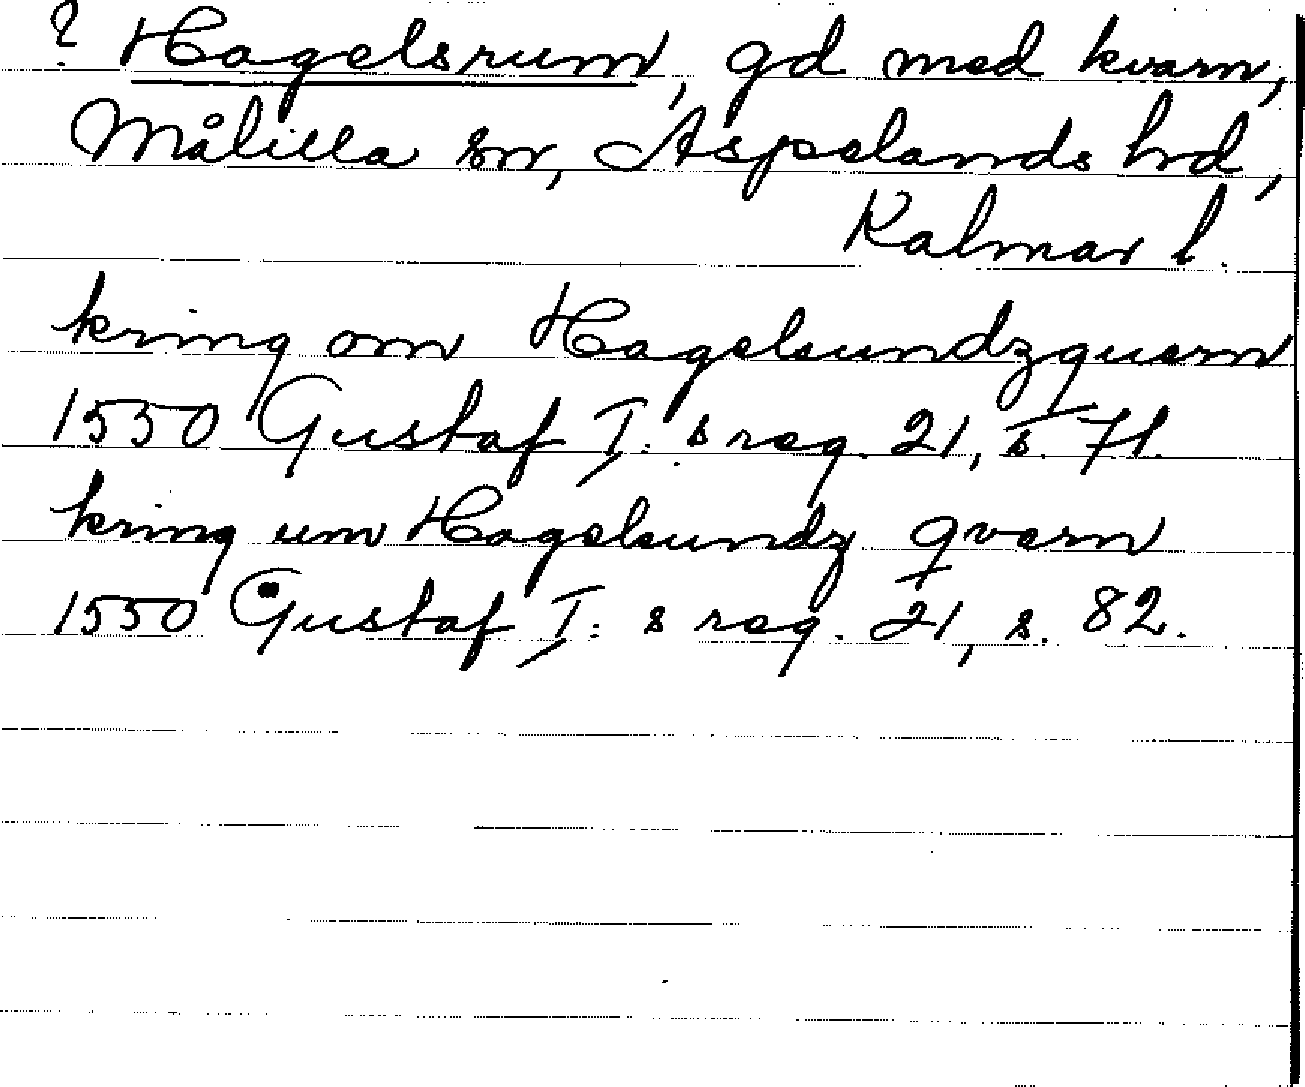 ? Hagelsrum, gd med kvarn,
Målilla sn, Aspelands hrd,
Kalmar l.
kring om Hagelsundzquern
1550 Gustaf I: s reg. 21, s. 71.
kring um Hagelsundz qvern
1550 Gustaf I: s reg. 21, s. 82.